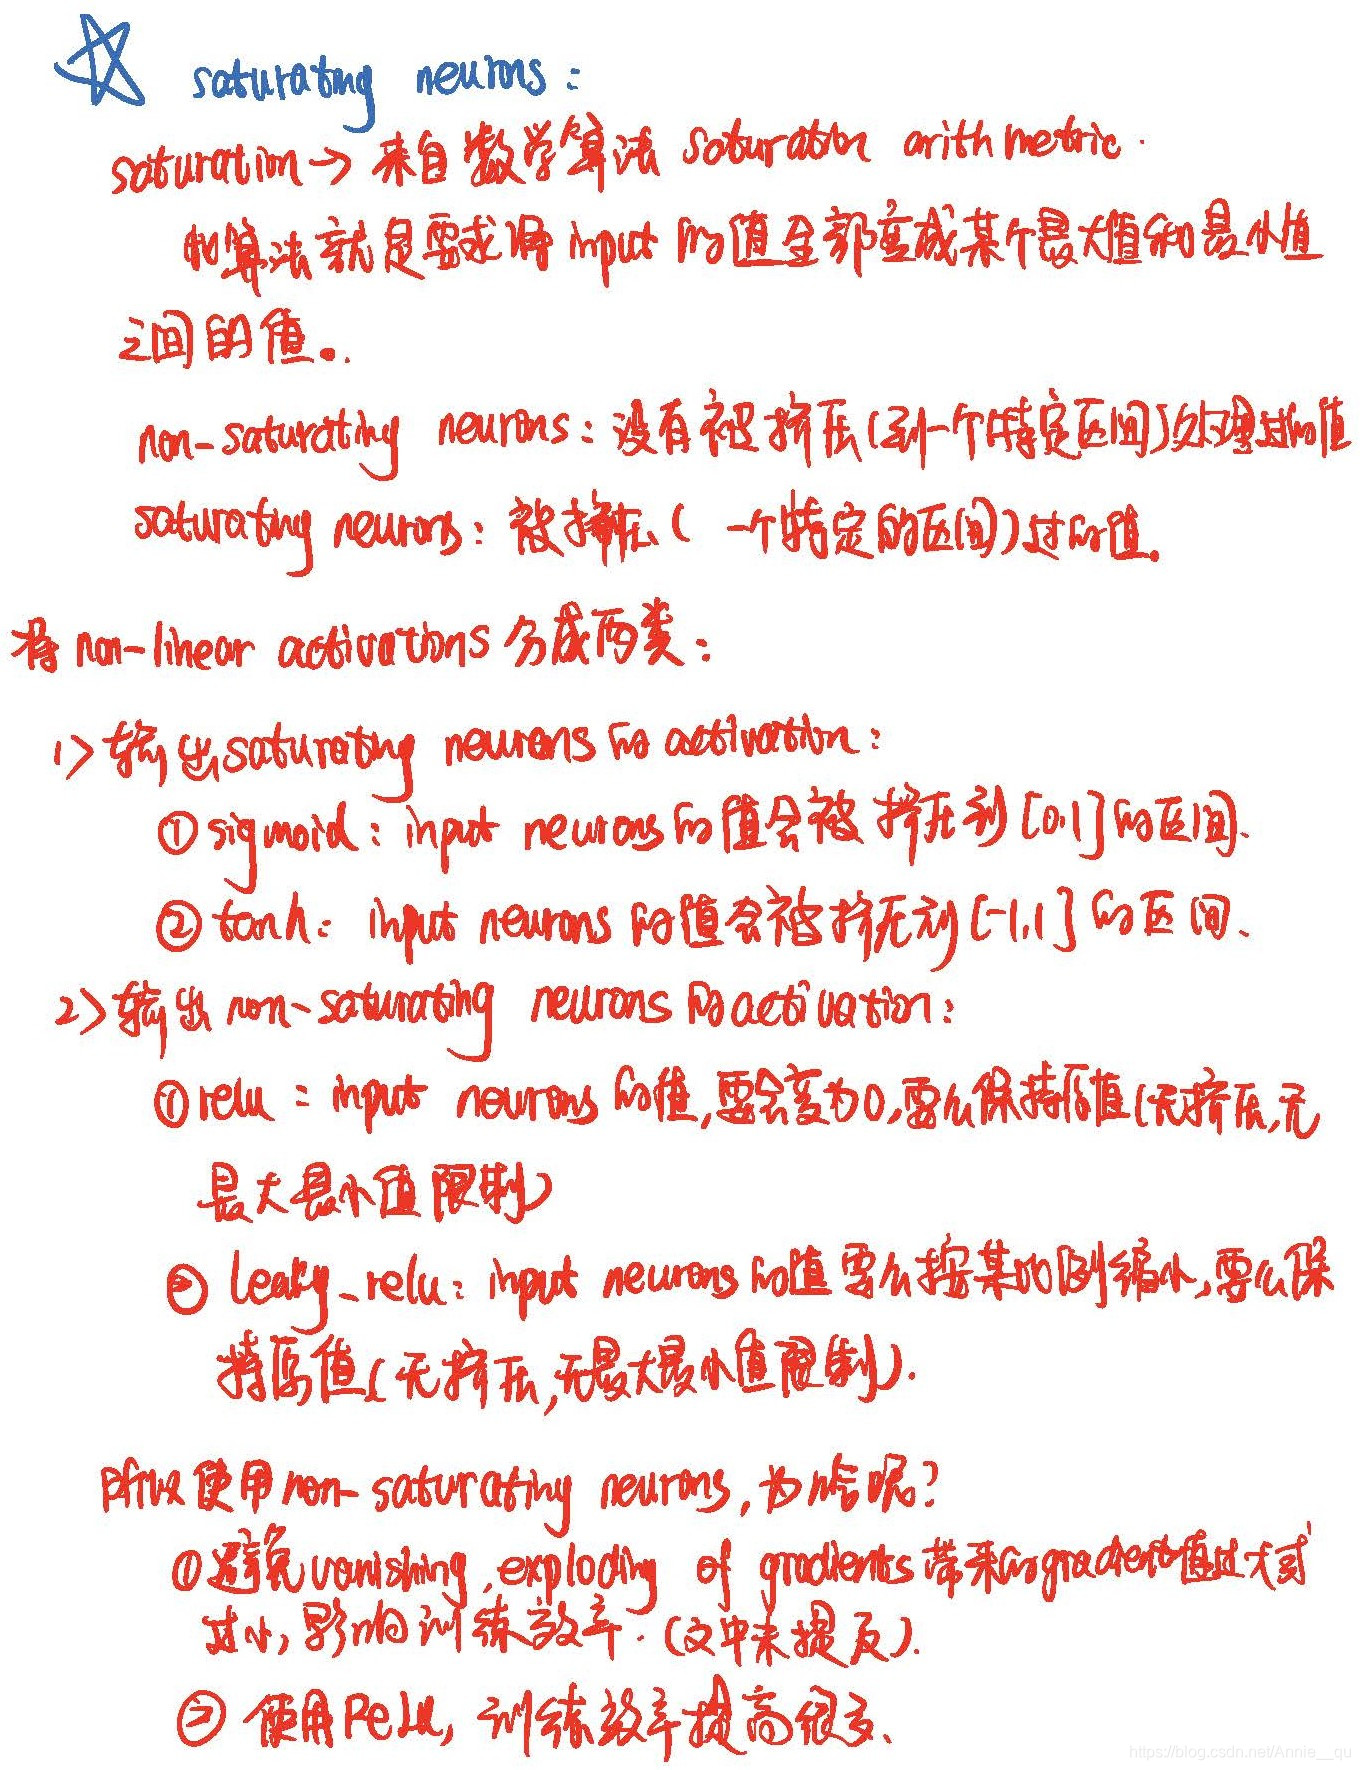 saturating neurons:
saturation → 来自数学算法 saturation arithmetric.
算法就是要求将input的值全部变成某个最大值和最小值
之间的值。.
non-saturating neurons: 没有被挤压(到一个特定区间)处理过的值
saturating neurons: 被挤压( 一个特定的区间)过的值。
将non-linear activations分成两类:
1> 输出saturating neurons的activation:
① sigmoid: input neurons的值会被挤压到[0,1]的区间、
② tanh: input neurons的值会被挤压到[-1,1]的区间、
2> 输出non-saturating neurons的activation:
① relu: input neurons的值,要会变为0,要么保持原值(无挤压,无
最大最小值限制)
② leaky_relu: input neurons的值要么按某比例缩小,要么保
持原值(无挤压,无最大最小值限制).
所以使用non-saturating neurons,为啥呢?
① 避免vanishing,exploding of gradients带来的gradient值过大或
过小,影响训练效率.(文中未提及).
② 使用ReLu,训练效率提高很多、
https://blog.csdn.net/Annie__qu